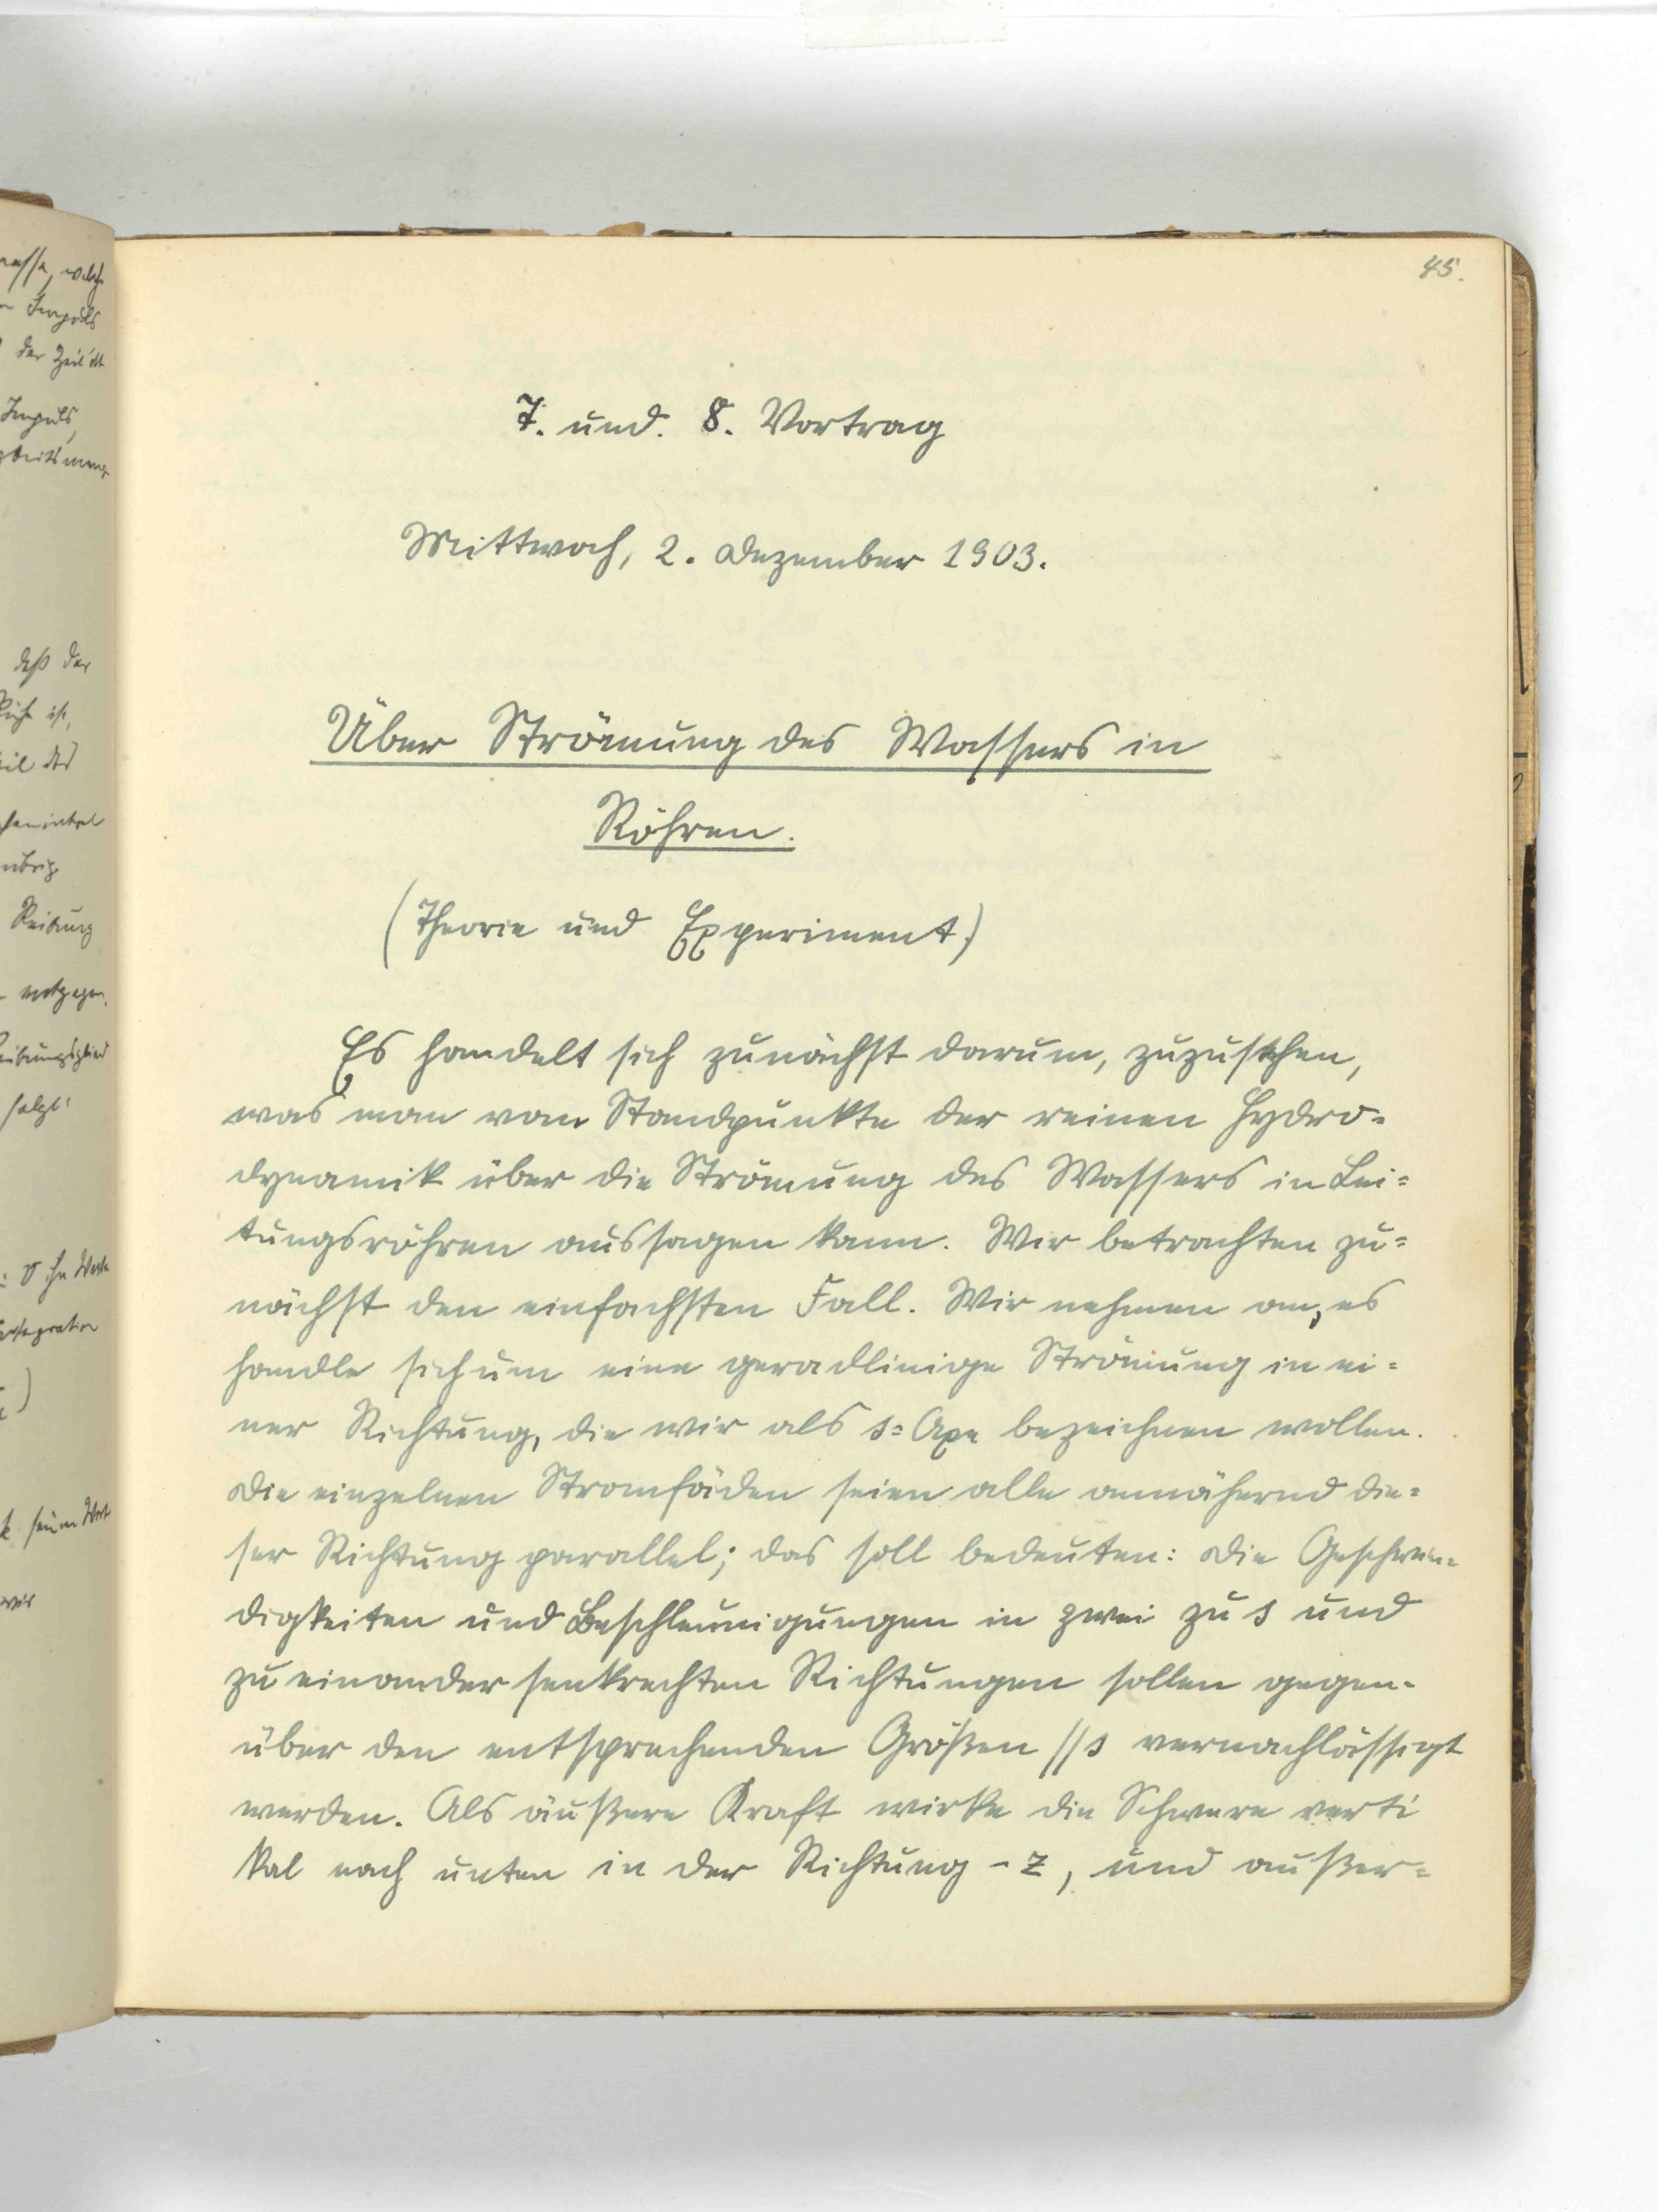 45.
7. und. 8. Vortrag
Mittwoch, 2. Dezember 1903.
Über Strömung des Wassers in
Röhren.
(Theorie und Experiment.)
Es handelt sich zunächst darum, zuzusehen,
was man vom Standpunkte der reinen Hydro-
dynamik über die Strömung des Wassers in Lei-
tungsröhren aussagen kann. Wir betrachten zu-
nächst den einfachsten Fall. Wir nehmen an, es
handle sich um eine geradlinige Strömung in ei-
ner Richtung, die wir als s-Axe bezeichnen wollen.
Die einzelnen Stromfäden seien alle annähernd die-
ser Richtung parallel; das soll bedeuten: Die Geschwin-
digkeiten und Beschleunigungen in zwei zu s und
zu einander senkrechten Richtungen sollen gegen-
über den entsprechenden Größen //s vernachlässigt
werden. Als äußere Kraft wirke die Schwere verti
kal nach unten in der Richtung -z, und außer-